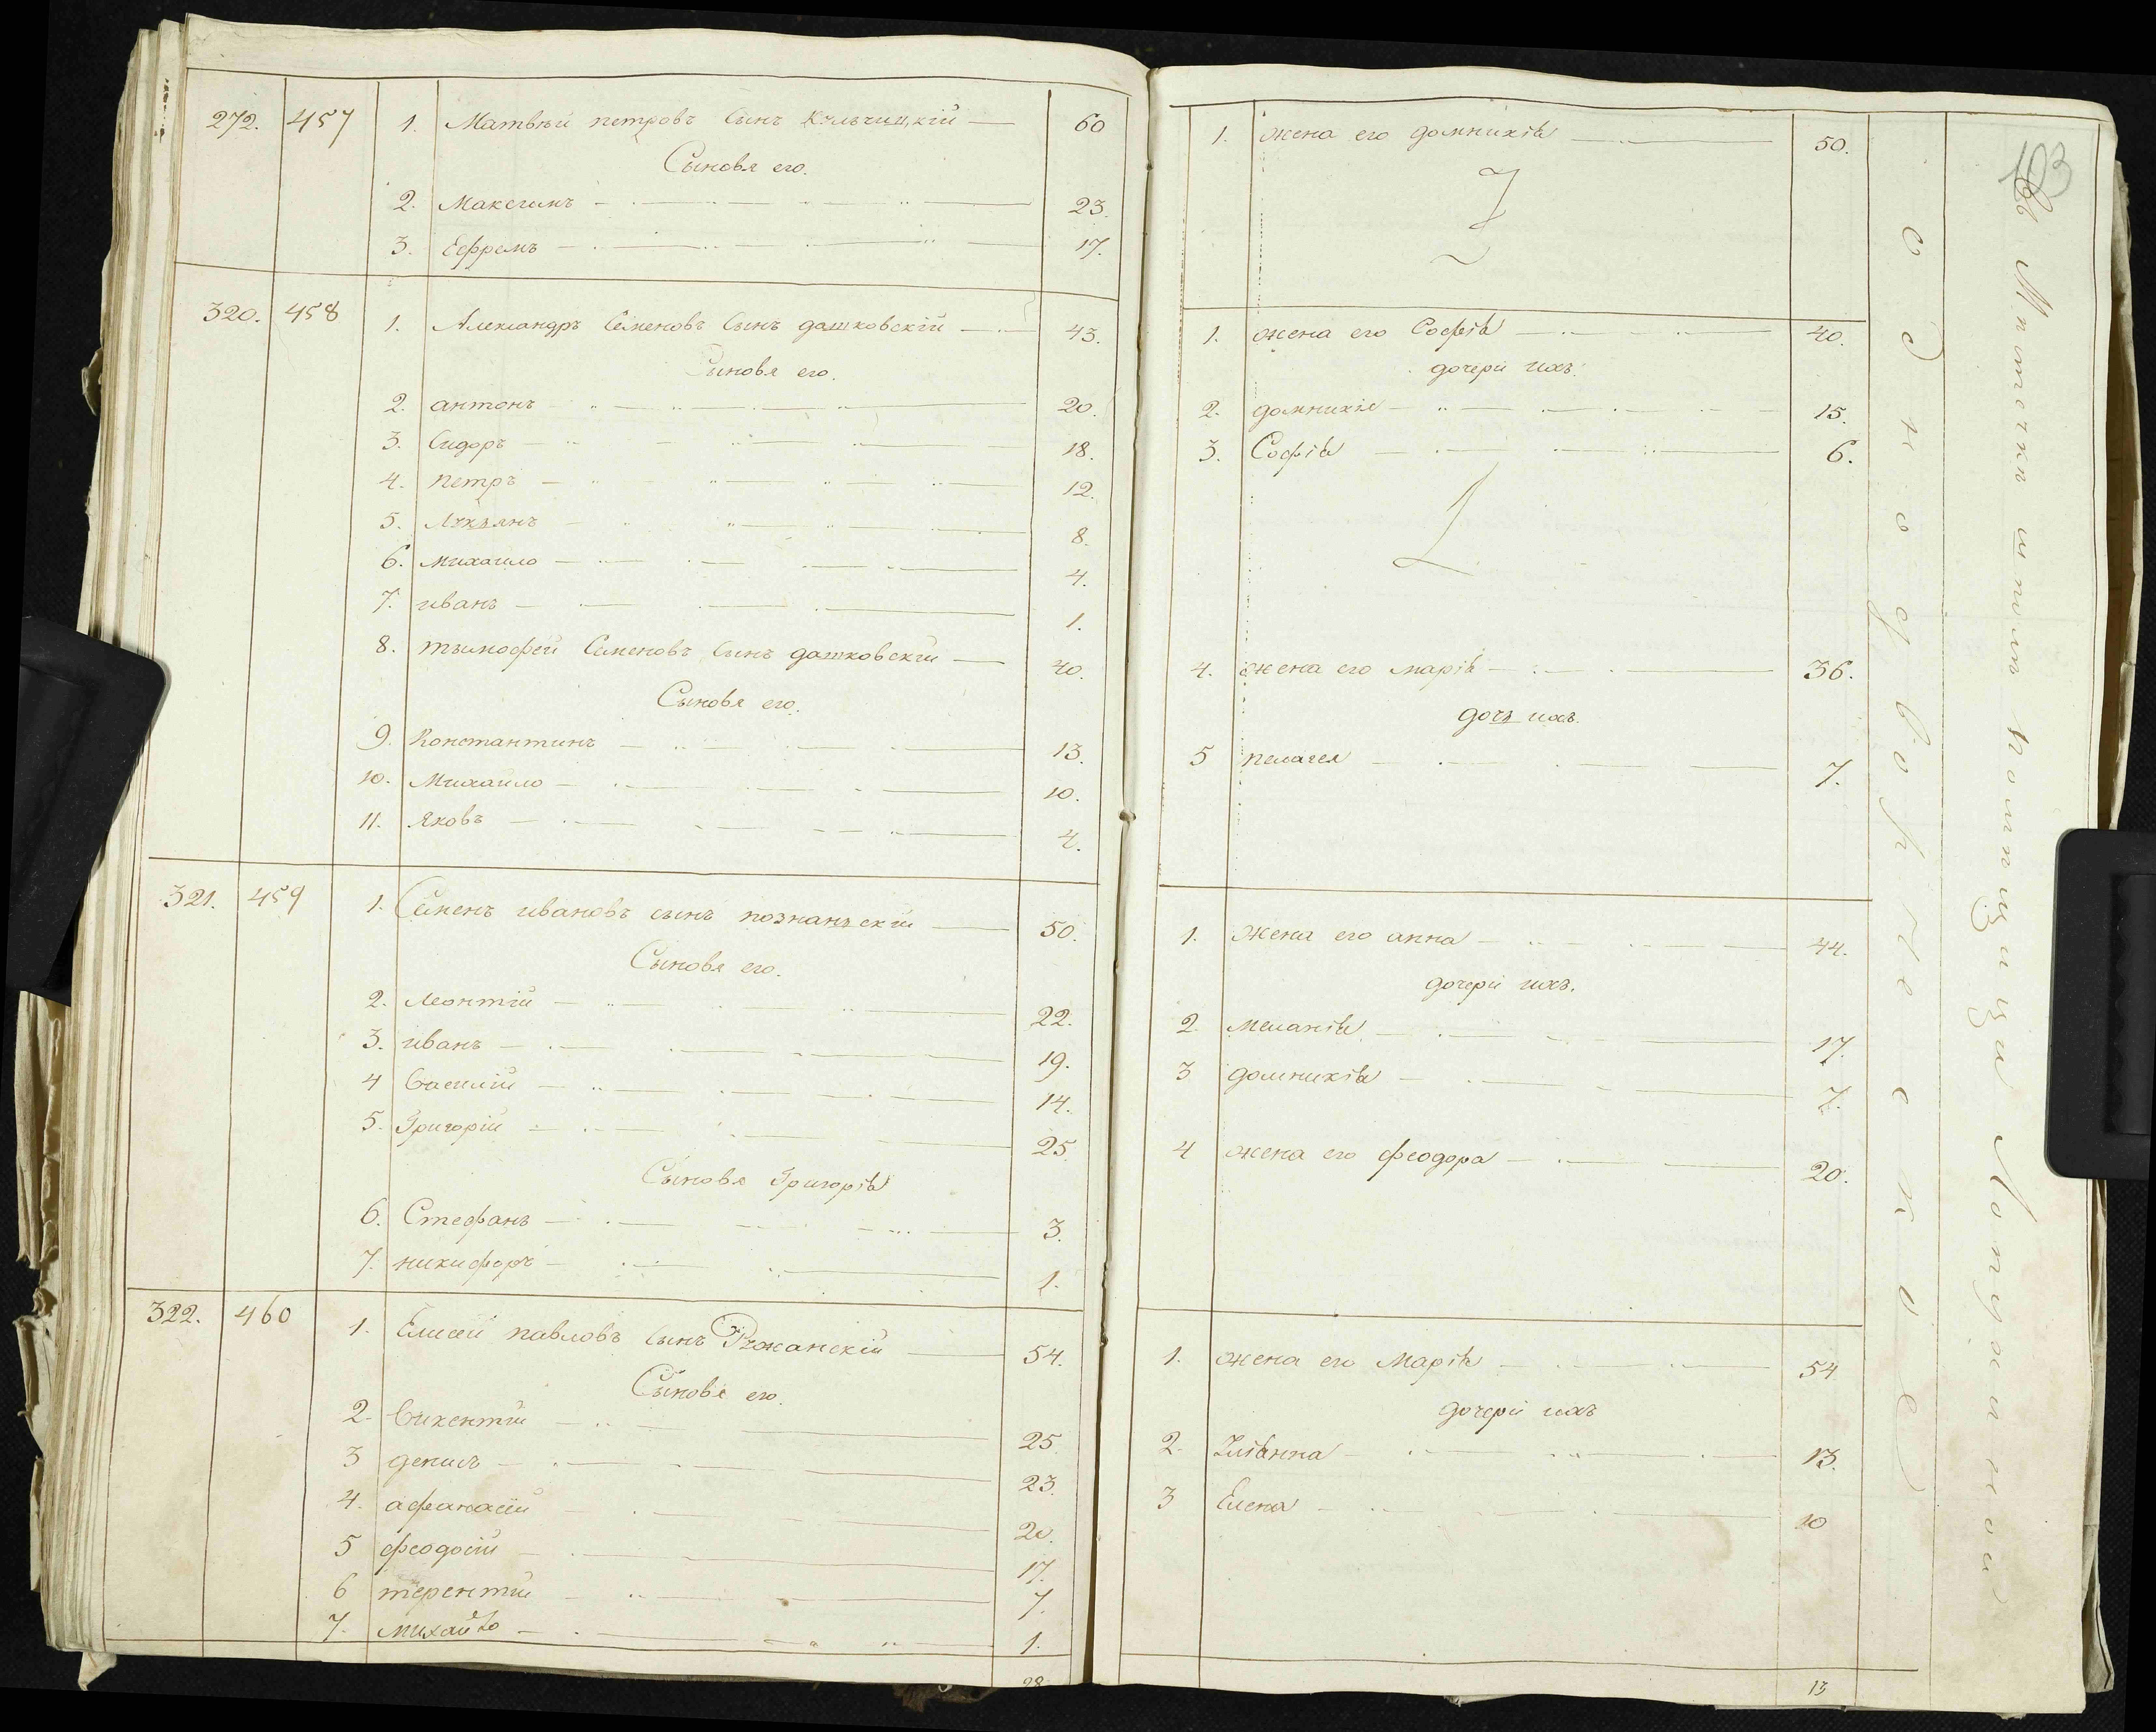 272. 457 1. Матвѣй петровъ сынъ Кульчицкій 60
Сыновя его.
2. Максимъ 23.
3. Ефремъ 17.
320. 458 1. Александръ Семеновъ сынъ дашковскій 43.
Сыновя его.
2. антонъ 20.
3. Сидоръ 18.
4. петръ 12.
5. Лукъянъ 8.
6. михаило 4.
7. иванъ 1.
8. тымофей Семеновъ сынъ дашковскій 40.
Сыновя его.
9. Константинъ 13.
10. Михаило 10.
11. Яковъ 4.
321. 459 1. Семенъ ивановъ сынъ познанъскій 50.
Сыновя его.
2. Леонтій 22.
3. иванъ 19.
4 Василій 14.
5. Григорій 25.
Сыновя Григорія
6. Стефанъ 3.
7. никифоръ 1.
322. 460 1. Елисей павловъ сынъ Ружанскій 54.
Сыновя его.
2. Викентій 25.
3 денисъ 23.
4. афанасій 20.
5 феодосій 17.
6 терентій 7.
7. михайло 1.
28.
103
1. жена его домникія 50.
1. жена его Софія 40.
дочери ихъ.
2. домникія 15.
3. Софія 6.
4. жена его марія 36.
дочъ ихъ.
5 пелагея 7.
1. жена его анна 44.
дочери ихъ.
2. меланія 17.
3 домникія 7.
4 жена его феодора 20.
1. жена его Марія 54
дочери ихъ
2. Уліянна 13.
3 Елена 10
13
однодворческое